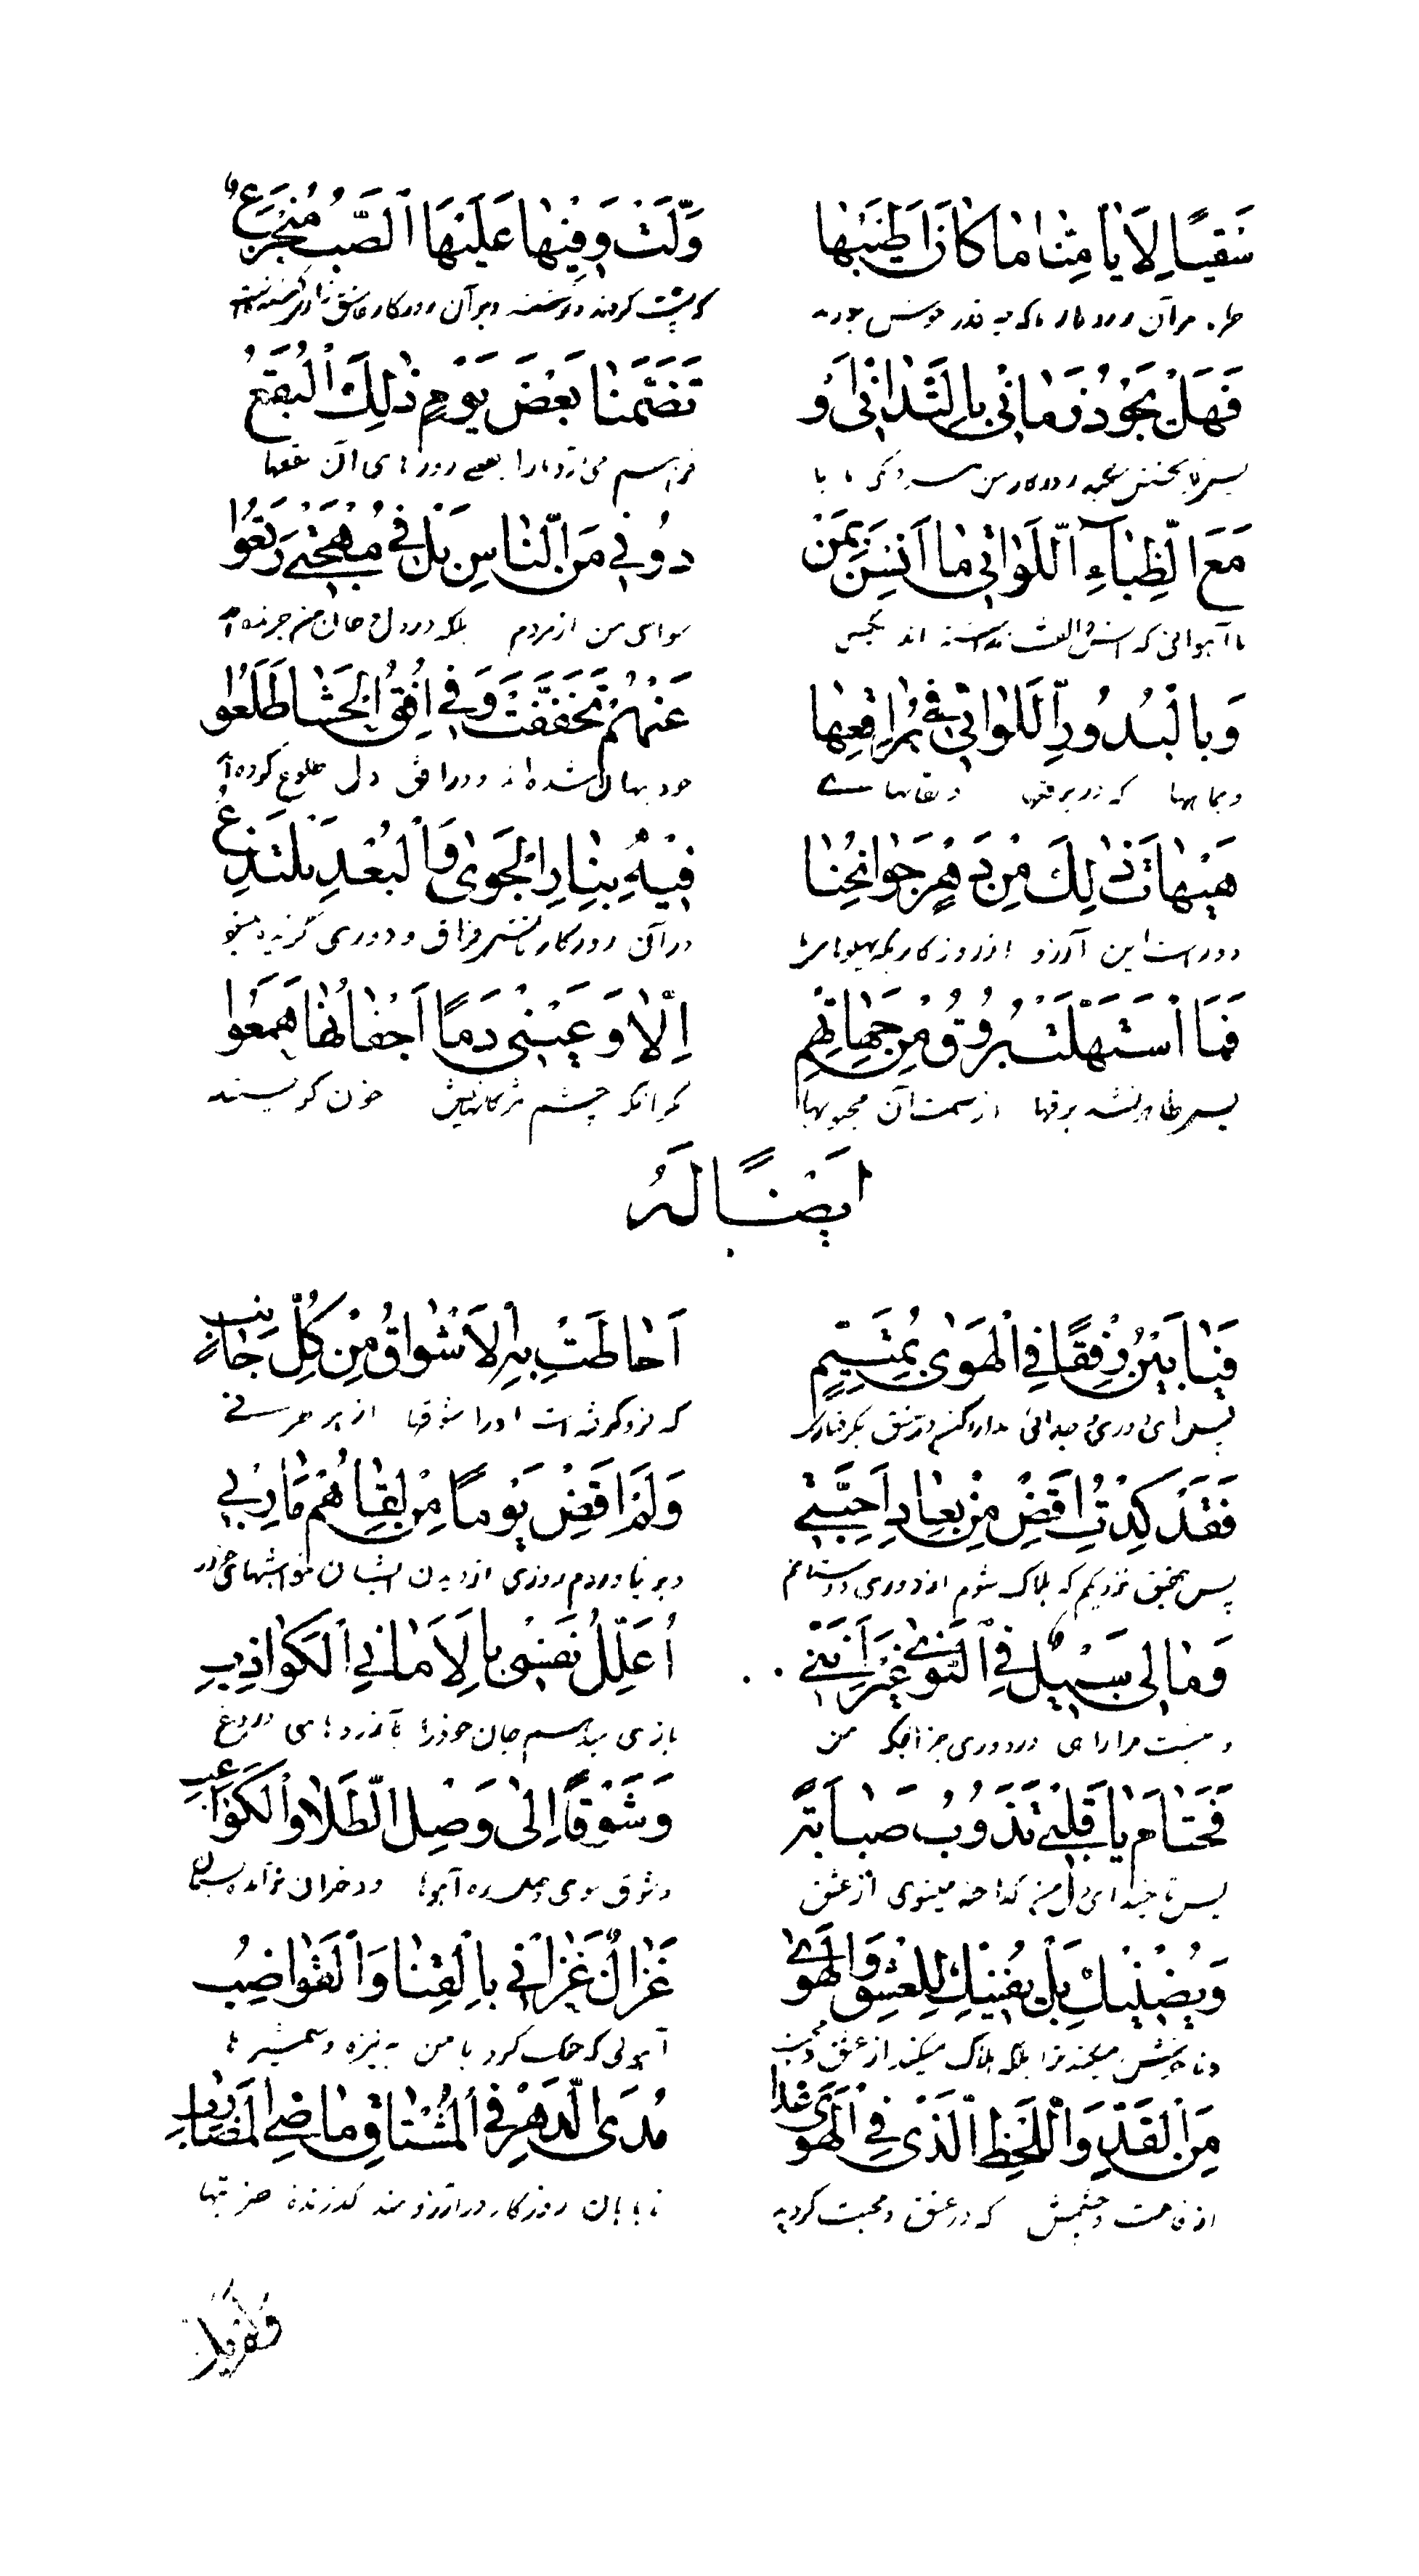 سَقْيًا لِأَيَّامِنَا مَا كَانَ أَطْيَبَهَا وَلَّتْ وَفِيهَا عَلَيْهَا الصَّبُّ
پشت کردند وبرآن روزکار عاشق
فَهَلْ يَجُودُ زَمَانِي بِالتَّدَانِي أَوْ تَضُمَّنَا بَعْضَ يَوْمٍ ذٰلِكَ الْبُقَعُ
روزکار من ما را بعضے روزهای آن بقعها
مَعَ الظِّبَاءِ اللَّوَاتِي مَا أَنِسْنَ بِمَنْ دُونِي مِنَ النَّاسِ بَلْ فِي مُهْجَتِي رَتَعُوا
باآهوانی که انس والفت نداشته اند بکس سوای من از مردم بلکه در دل وجان من
وَبِالْبُدُورِ اللَّوَاتِي فِي بَرَاقِعِهَا عَنْهُمْ تَخَفَّتْ وَفِي أُفُقِ الْحَشَا طَلَعُوا
وبماهها که در برقعها ونقابهاے خود پنهان شده اند ودر افق دل طلوع کرده
هَيْهَاتَ ذٰلِكَ مِنْ دَهْرٍ جَوَانِحُنَا فِيهِ بِنَارِ الْجَوَى وَالْبُعْدِ تَلْتَذِعُ
دور است این آرزو از روزکاریکه پهلوها در آن روزکار بآتش فراق و دوری
فَمَا اسْتَهَلَّتْ بُرُوقٌ مِنْ جِهَاتِهِمِ إِلَّا وَعَيْنِي دَمًا أَجْفَانُهَا هَمَعُوا
پس ظاهر نشد برقها از سمت آن محبوبها مکر آنکه چشم مژکانهایش خون کریستند
أَيْضًا لَهُ
فَيَا بَيْنُ رِفْقًا فِي الْهَوَى بِمُتَيَّمٍ أَحَاطَتْ بِهِ الْأَشْوَاقُ مِنْ كُلِّ جَانِبِ
پس ای دوری وجدائی مدارا کن در عشق که فرو کرفته است اورا شوقها از هر طرفے
فَقَدْ كِدْتُ أَقْضِ مِنْ بِعَادِ أَحِبَّتِي وَلَمْ أَقْضِ يَوْمًا مِنْ لِقَاهُمْ مَآرِبِي
پس بتحقیق نزدیکم که هلاک شوم از دوری دوستانم وبر نیاوردم روزی از دیدن ایشان خواهشهای خود
وَمَا لِي سَبِيلٌ فِي النَّوَى غَيْرَ أَنَّنِي أُعَلِّلُ نَفْسِي بِالْأَمَانِي الْكَوَاذِبِ
ونیست مرا راهی در دوری جز آنکه من بازی میدهم جان خود را بآرزوهای دروغ
فَحَتَّامَ يَا قَلْبِي تَذُوبُ صَبَابَةً وَشَوْقًا إِلَى وَصْلِ الطَّلَا وَالْكَوَاعِبِ
پس تا چند ای دل من کداخته میشوی از عشق وشوق سوی وصل بره آهوها ودختران
وَيُضْنِيكَ بَلْ يُفْنِيكَ لِلْعِشْقِ وَالْهَوَى غَزَالٌ غَزَانِي بِالْقَنَا وَالْقَوَاضِبِ
وناخوش میکند ترا بلکه هلاک میکند از عشق ومحبت آهوئی که جنک کرد با من به نیزه وشمشیرها
مِنَ الْقَدِّ وَاللَّحْظِ الَّذِي فِي الْهَوَى غَدَا مُدَى الدَّهْرِ فِي الْمُشْتَاقِ مَاضِي الْمَضَارِبِ
از قامت وچشمش که در عشق ومحبت کردید تا پایان روزکار در آرزومند کذرنده ضربتها